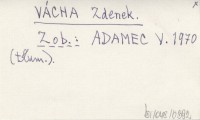 VÁCHA Zdenek.
Zob.: ADAMEC V. 1970
(tlum.).